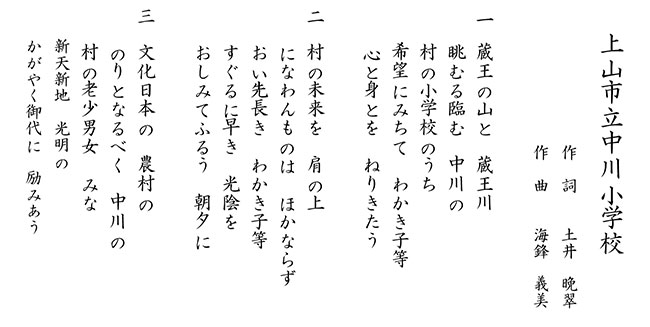 上山市立中川小学校
作詞 土井 晩翠
作曲 海鋒 義美
一 蔵王の山と 蔵王川
眺むる臨む 中川の
村の小学校のうち
希望にみちて わかき子等
心と身とを ねりきたう
二 村の未来を 肩の上
になわんものは ほかならず
おい先長き わかき子等
すぐるに早き 光陰を
おしみてふるう 朝夕に
三 文化日本の 農村の
のりとなるべく 中川の
村の老少男女 みな
新天新地 光明の
かがやく御代に 励みあう